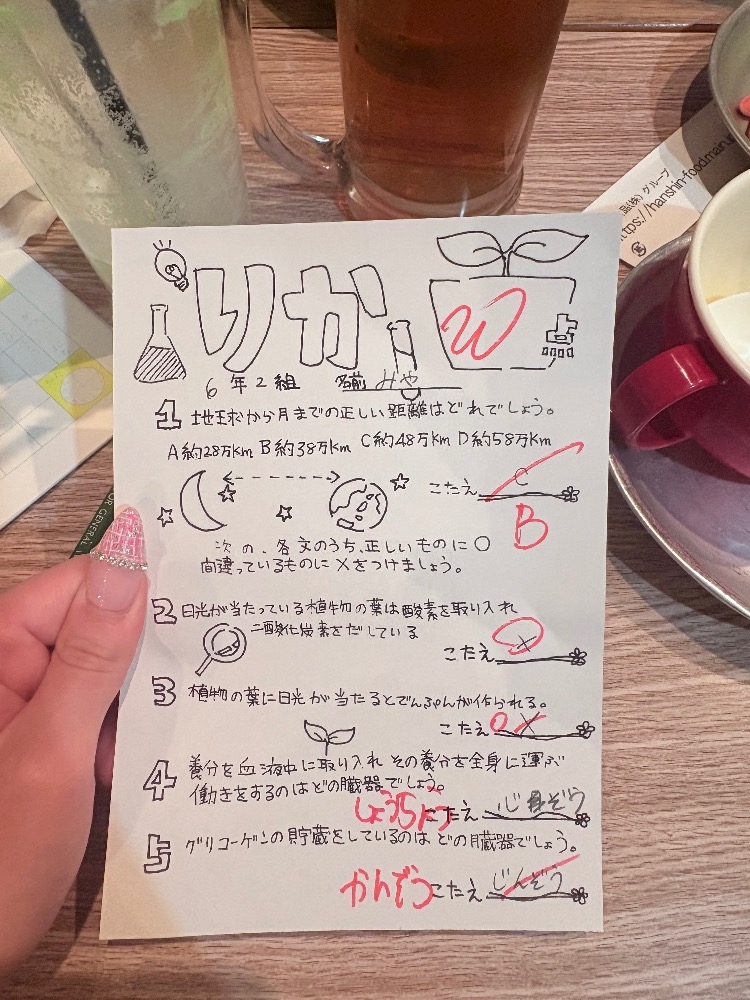 品(株)グループ
https://hanshin-foodmar
りか
点
6年2組 名前 みや
1 地球から月までの正しい距離はどれでしょう。
A約28万Km B約38万Km C約48万Km D約58万Km
こたえ C
B
次の、各文のうち、正しいものに○
間違っているものに×をつけましょう。
2 日光が当たっている植物の葉は酸素を取り入れ
二酸化炭素をだしている
こたえ ×
3 植物の葉に日光が当たるとでんぷんが作られる。
こたえ ○ ×
4 養分を血液中に取り入れその養分を全身に運ぶ
働きをするのはどの臓器でしょう。
しょうちょう こたえ 心ぞう
5 グリコーゲンの貯蔵をしているのはどの臓器でしょう。
かんぞう こたえ じんぞう
OR GENERAL